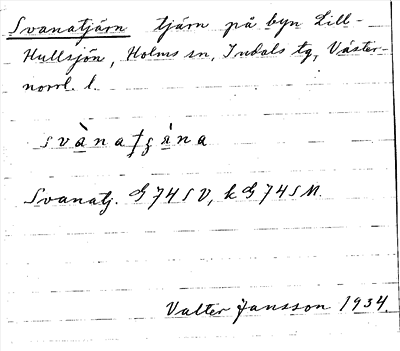 Svanatjärn tjärn på byn Lill-
Hullsjön, Holms sn, Indals tg, Väster-
norrl. l.
Svanatj. G 74 S V, k G 74 S M.
Valter Jansson 1934.